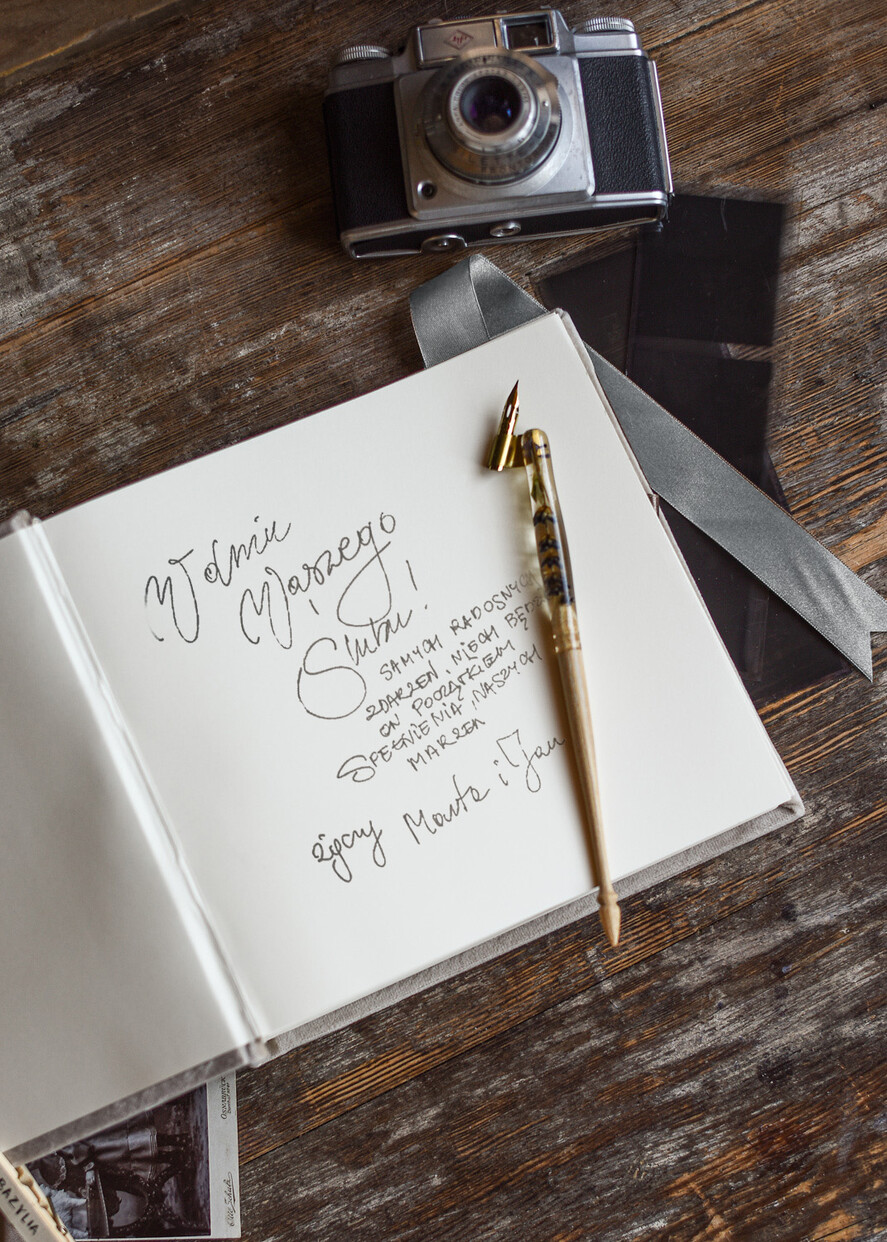 W dniu
Waszego
Ślubu!
SAMYCH RADOSNYCH
ZDARZEŃ, NIECH
ON POCZĄTKIEM
SPEŁNIENIA NASZYCH
MARZEŃ
życzy Marta i Jan
BAZYLIA